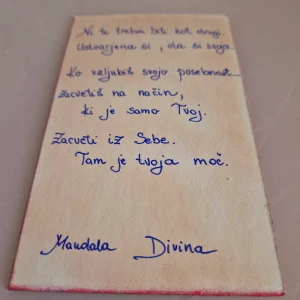 Ni ti treba biti kot drugi.
Ustvarjena si, da si svoja.
Ko vzljubiš svojo posebnost
zacvetiš na način,
ki je samo Tvoj.
Zacveti iz Sebe.
Tam je tvoja moč.
Mandala Divina